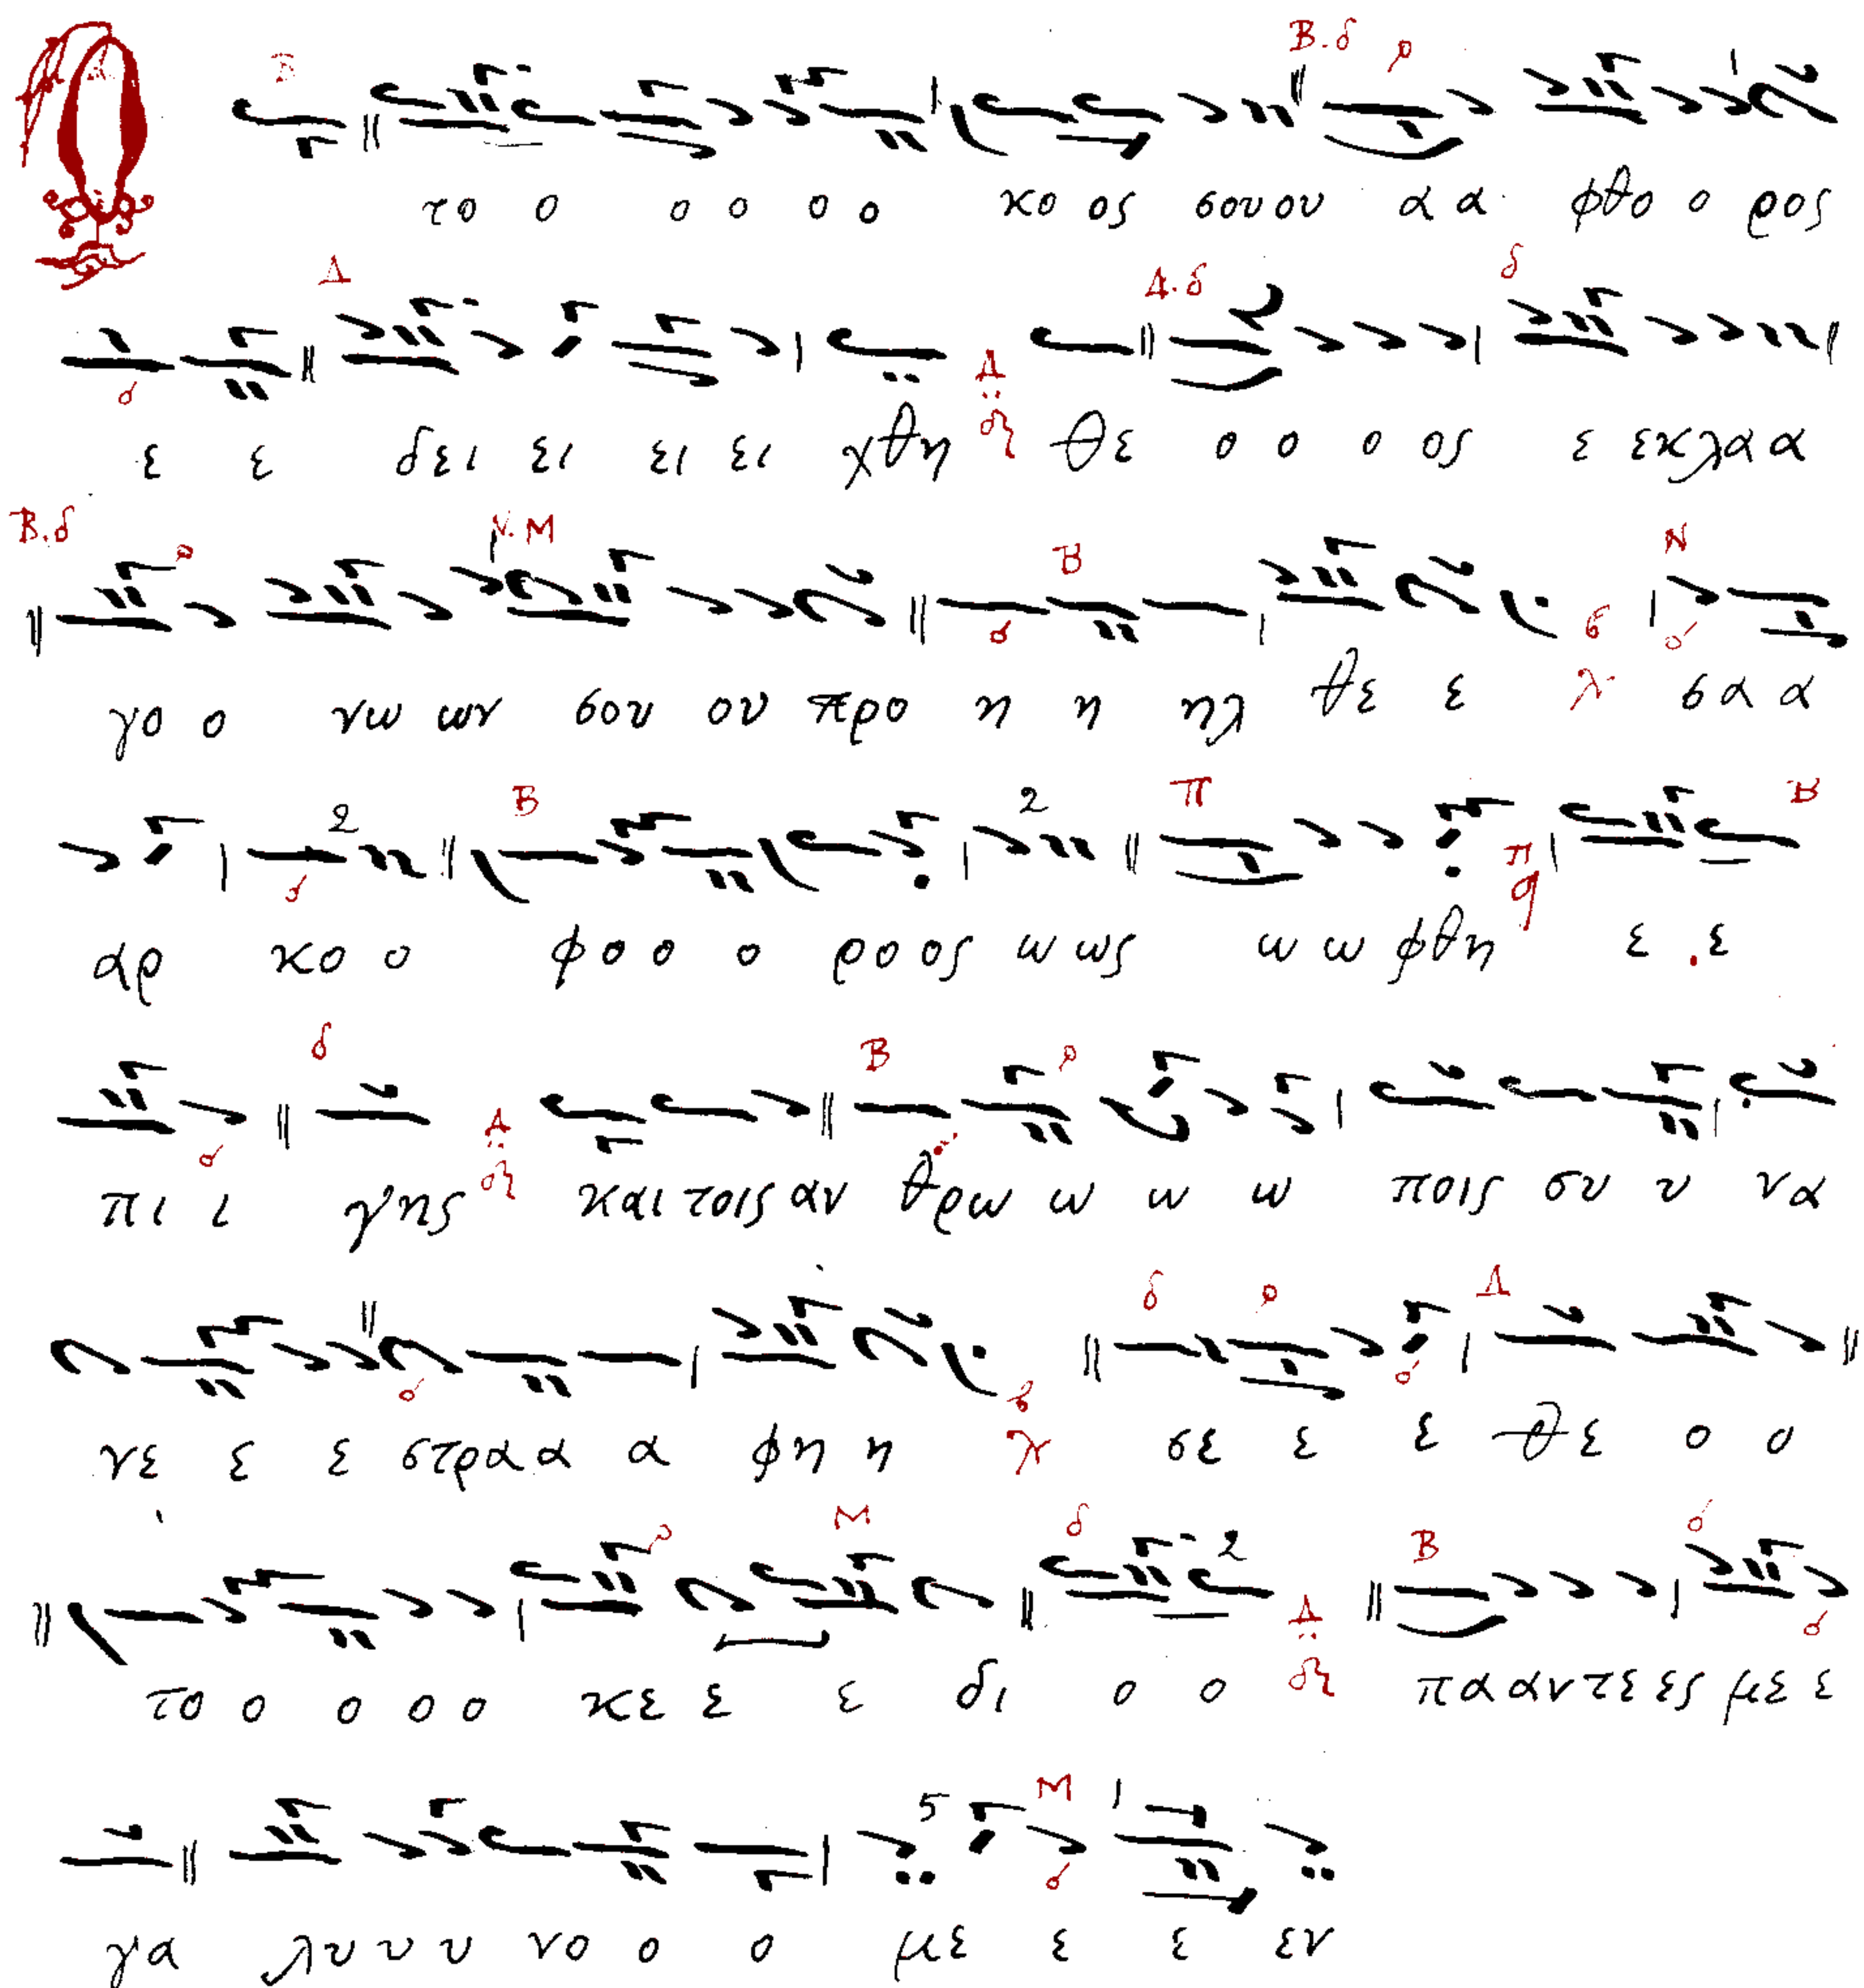 Ο το ο ο ο ο ο κο ος σου ου α α φθο ο ρος
ε ε δει ει ει ει χθη θε ο ο ο ος ε εκ λα α
γο ο νω ων σου ου προ η η ηλ θε ε σα α
αρ κο ο φο ο ο ρο ος ω ως ω ω φθη ε ε
πι ι γης και τοις αν θρω ω ω ω ποις συ υ να
νε ε ε στρα α α φη η σε ε ε θε ο ο
το ο ο ο ο κε ε ε δι ο ο πα αν τε ες με ε
γα λυ υ υ νο ο ο με ε ε εν